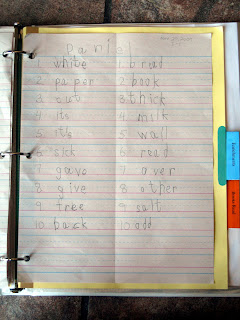 Daniel
white 1. brud
2. paper 2. book
3. cut 3. thick
4. its 4. milk
5. it's 5. wall
6. sick 6. read
7. gave 7. over
8. give 8. other
9. tree 9. salt
10. back 10. add